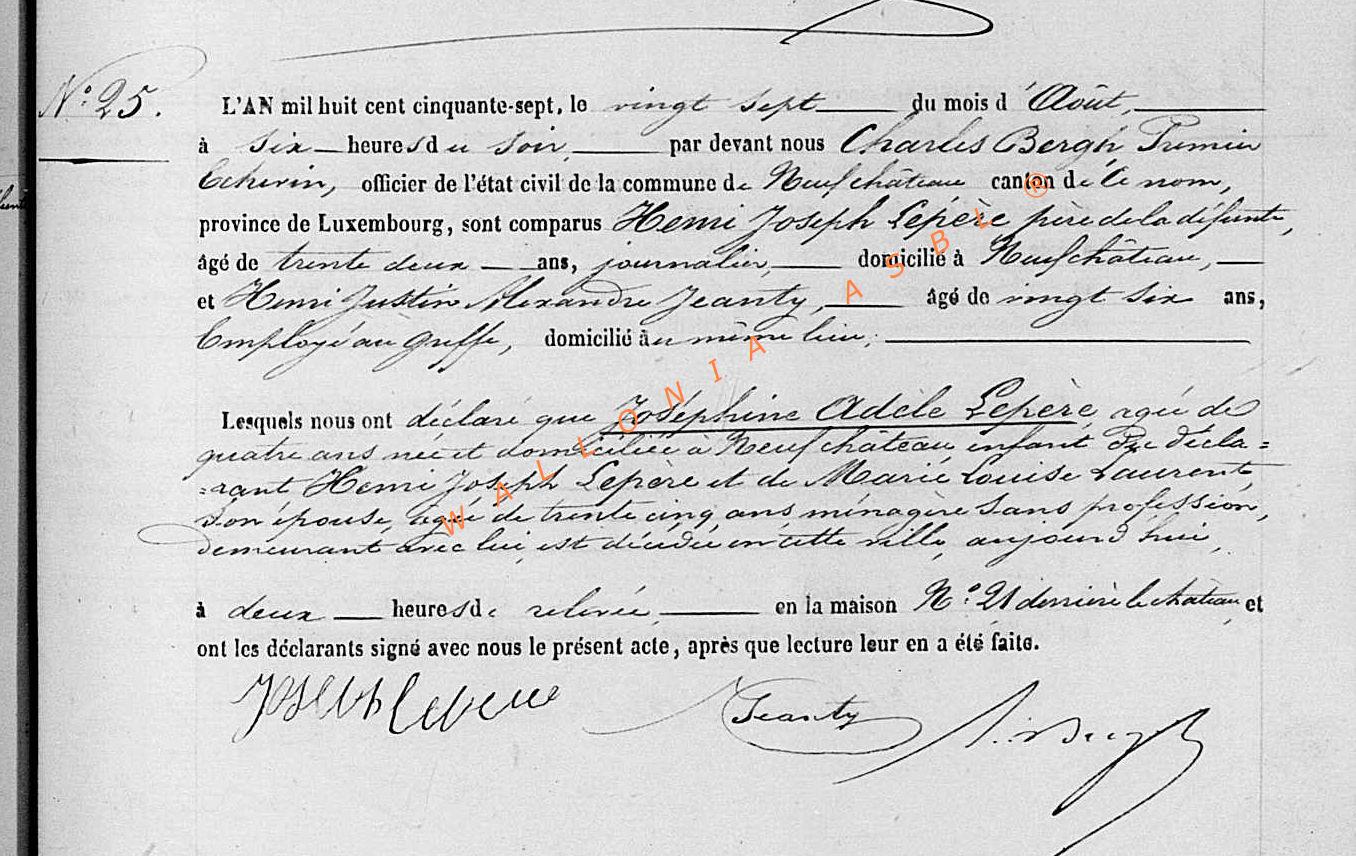 N.º 25.
L'AN mil huit cent cinquante-sept, le vingt sept du mois d'Août,
à six heures du soir, par devant nous Charles Bergh Premier
Echevin, officier de l'état civil de la commune de Neufchâteau canton de ce nom,
province de Luxembourg, sont comparus Henri Joseph Lepère père de la défunte,
âgé de trente deux ans, journalier, domicilié à Neufchâteau,
et Henri Justin Alexandre Jeanty, âgé de vingt six ans,
Employé au Greffe, domicilié au même lieu;
Lesquels nous ont déclaré que Joséphine Adèle Lepère agée de
quatre ans née et domiciliée à Neufchâteau enfant du décla=
=rant Henri Joseph Lepère et de Marie Louise Laurent,
son épouse, agée de trente cinq ans ménagère sans profession,
demeurant avec lui, est décédée en cette ville, aujourd'hui,
à deux heures de relevée, en la maison N.º 21 derrière le château, et
ont les déclarants signé avec nous le présent acte, après que lecture leur en a été faite.
Joseph Lepere Jeanty
WALLONIA ASBL ®